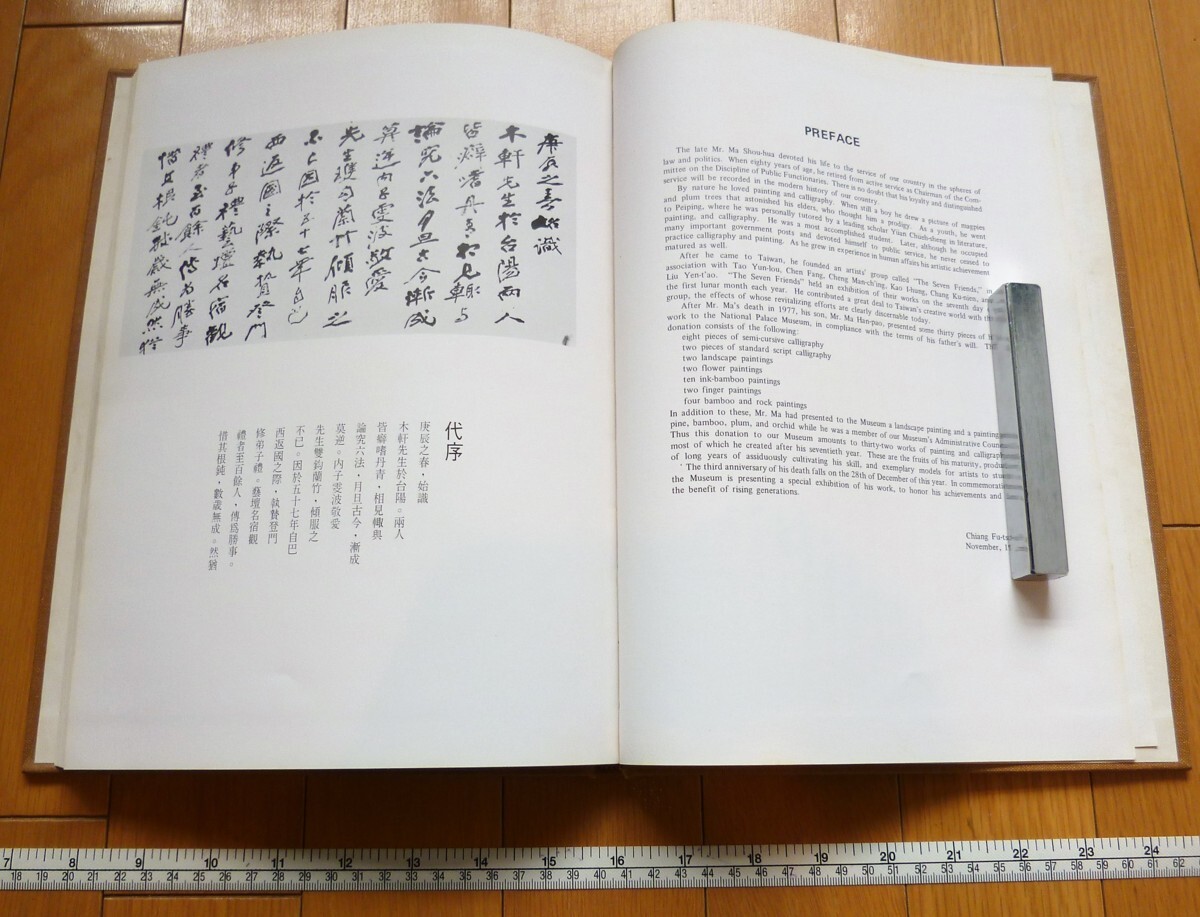 庚辰之春始識
木軒先生於台陽兩人
皆癖嗜丹青相見輒與
論究六法月旦古今漸成
莫逆內子雯波敬愛
先生雙勾蘭竹傾服之
不已因於五十七年自巴
西返國之際執贄登門
修弟子禮藝壇名宿觀
禮者至百餘人傳為勝事
惜其根鈍數歲無成然猶
代序
庚辰之春，始識
木軒先生於台陽。兩人
皆癖嗜丹青，相見輒與
論究六法，月旦古今，漸成
莫逆。內子雯波敬愛
先生雙鈎蘭竹，傾服之
不已。因於五十七年自巴
西返國之際，執贄登門
修弟子禮。藝壇名宿觀
禮者至百餘人，傳爲勝事。
惜其根鈍，數歲無成。然猶
PREFACE
The late Mr. Ma Shou-hua devoted his life to the service of our country in the spheres of
law and politics. When eighty years of age, he retired from active service as Chairman of the Com-
mittee on the Discipline of Public Functionaries. There is no doubt that his loyalty and distinguished
service will be recorded in the modern history of our country.
By nature he loved painting and calligraphy. When still a boy he drew a picture of magpies
and plum trees that astonished his elders, who thought him a prodigy. As a youth, he went
to Peiping, where he was personally tutored by a leading scholar Yüan Chüeh-sheng in literature,
painting, and calligraphy. He was a most accomplished student. Later, although he occupied
many important government posts and devoted himself to public service, he never ceased to
practice calligraphy and painting. As he grew in experience in human affairs his artistic achievement
matured as well.
After he came to Taiwan, he founded an artists' group called "The Seven Friends," in
association with Tao Yun-lou, Chen Fang, Cheng Man-ch'ing, Kao I-hung, Chang Ku-nien, and
Liu Yen-t'ao. "The Seven Friends" held an exhibition of their works on the seventh day
the first lunar month each year. He contributed a great deal to Taiwan's creative world with
group, the effects of whose revitalizing efforts are clearly discernable today.
After Mr. Ma's death in 1977, his son, Mr. Ma Han-pao, presented some thirty pieces of
work to the National Palace Museum, in compliance with the terms of his father's will.
donation consists of the following:
eight pieces of semi-cursive calligraphy
two pieces of standard script calligraphy
two landscape paintings
two flower paintings
ten ink-bamboo paintings
two finger paintings
four bamboo and rock paintings
In addition to these, Mr. Ma had presented to the Museum a landscape painting and a painting
pine, bamboo, plum, and orchid while he was a member of our Museum's Administrative
Thus this donation to our Museum amounts to thirty-two works of painting and
most of which he created after his seventieth year. These are the fruits of his maturity,
of long years of assiduously cultivating his skill, and exemplary models for artists to
The third anniversary of his death falls on the 28th of December of this year. In
the Museum is presenting a special exhibition of his work, to honor his achievements and
the benefit of rising generations.
Chiang
November,
7 8 9 10 11 12 13 14 15 16 17 18 19 20 21 22 23 24
18 19 20 21 22 23 24 25 26 27 28 29 30 31 32 33 34 35 36 37 38 39 40 41 42 43 44 45 46 47 48 49 50 51 52 53 54 55 56 57 58 59 60 61 62